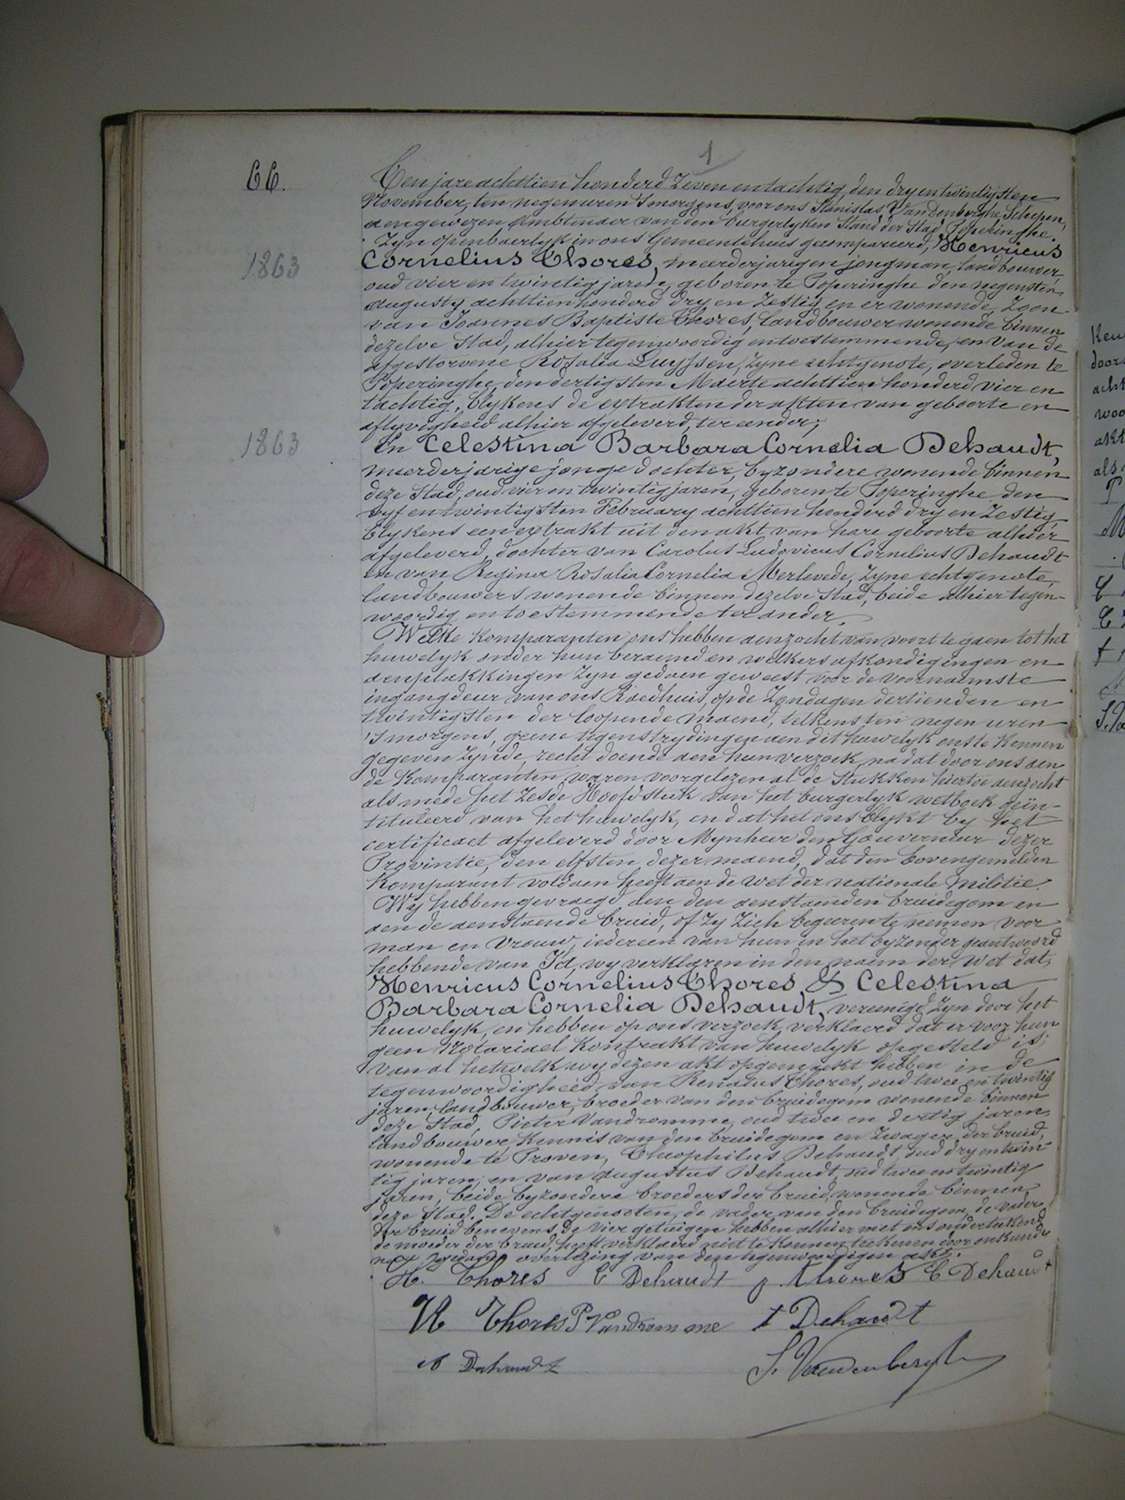 1
66.
Ten jare achttien honderd zeven en tachtig, den dry en twintigsten
November, ten negen uren 's morgens, voor ons Stanislas Vandenberghe, Schepen,
aengewezen Ambtenaer van den burgerlyken Stand der Stad Poperinghe.
Zyn openbaerlyk in ons Gemeentehuis gecompareerd, Henricus
1863
Cornelius Thores, meerderjarigen jongman, landbouwer
oud vier en twintig jaren, geboren te Poperinghe den negensten
augusty achttien honderd dry en zestig en er wonende, Zoon
van Joannes Baptiste Thores, landbouwer wonende binnen
dezelve Stad, alhier tegenwoordig en toestemmende, en van de
afgestorvene Rosalia Luyssen, zyne echtgenote, overleden te
Poperinghe, den dertigsten Maerte achttien honderd vier en
tachtig, blykens de extrakten der akten van geboorte en
aflyvigheid alhier afgeleverd, ter eender;
1863
En Celestina Barbara Cornelia Dehaudt,
meerderjarige jonge dochter, byzondere wonende binnen
deze Stad, oud vier en twintig jaren, geboren te Poperinghe den
vyf en twintigsten February achttien honderd dry en zestig
blykens een extrakt uit den akt van hare geboorte alhier
afgeleverd, dochter van Carolus Ludovicus Cornelius Dehaudt
en van Regina Rosalia Cornelia Merlevede, zyne echtgenote,
landbouwers wonende binnen dezelve Stad, beide alhier tegen-
woordig en toestemmende ter ander.
Welke komparanten ons hebben aenzocht van voort te gaen tot het
huwelyk onder hun beraemd en welkers afkondigingen en
aenplakkingen zyn gedaen geweest voor de voornaemste
ingangdeur van ons Raedhuis, op de Zondagen dertienden en
twintigsten der loopende maend, telkens ten negen uren
's morgens, geene tegenstrydingen aen dit huwelyk ons te kennen
gegeven zynde, recht doende aen hun verzoek, na dat door ons aen
de komparanten waren voorgelezen al de Stukken hiertoe aenzocht
als mede het zesde Hoofdstuk van het burgerlyk wetboek geïn-
tituleerd van het huwelyk, en dat het ons blykt by het
certificaet afgeleverd door Mynheer den Gouverneur dezer
Provintie, den elfsten dezer maend, dat den bovengemelden
Komparant voldaen heeft aen de wet der nationale Militie.
Wy hebben gevraegd aen den aenstaenden bruidegom en
aen de aenstaende bruid, of zy zich begeeren te nemen voor
man en vrouw, iedereen van hun in het byzonder geantwoord
hebbende van Ja, wy verklaren in den naem der wet dat,
Henricus Cornelius Thores & Celestina
Barbara Cornelia Dehaudt, vereenigd zyn door het
huwelyk, en hebben op ons verzoek verklaerd dat er voor hun
geen Notariael Kontrakt van huwelyk opgesteld is;
van al hetwelk wy dezen akt opgemaekt hebben in de
tegenwoordigheid van Renatus Thores, oud twee en twintig
jaren, landbouwer, broeder van den bruidegom wonende binnen
deze Stad, Pieter Vandromme, oud twee en dertig jaren,
landbouwer, kennis van den bruidegom en zwager der bruid,
wonende te Proven, Theophilus Dehaudt, oud dry en twin-
tig jaren, en van Augustus Dehaudt, oud twee en twintig
jaren, beide byzondere broeders der bruid, wonende binnen
deze Stad. De echtgenooten, de vader van den bruidegom, de vader
der bruid benevens de vier getuigen hebben alhier met ons onderteekend,
de moeder der bruid heeft verklaerd niet te konnen teekenen door onkunde
na gedane overlezing van den tegenwoordigen akt.
H. Thores C Dehaudt J Thores C Dehaudt
R Thores P Vandromme t Dehaudt
A Dehaudt S. Vandenberghe